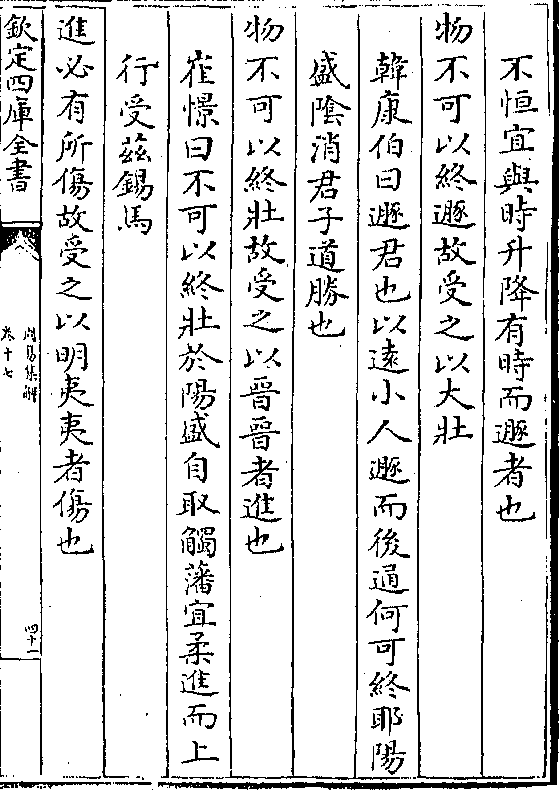 不恒宜與時升降有時而遯者也
物不可以終遯故受之以大壯
韓康伯曰遯君也以逺小人遯而後通何可終耶陽
盛隂消君子道勝也
物不可以終壯故受之以晉晉者進也
崔憬曰不可以終壯於陽盛自取觸藩宜柔進而上
行受兹錫馬
進必有所傷故受之以明夷夷者傷也
欽定四庫全書
周易集解
卷十七
四十一